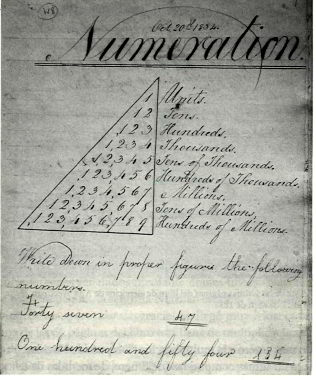 Oct 20th 1834.
Numeration.
1 Units.
1 2 Tens.
1 2 3 Hundreds.
1 2 3 4 Thousands.
1 2 3 4 5 Tens of Thousands.
1 2 3, 4 5 6 Hundreds of Thousands.
1, 2 3 4, 5 6 7 Millions.
1 2, 3 4 5, 6 7 8 Tens of Millions.
1 2 3, 4 5 6, 7 8 9 Hundreds of Millions.
Write down in proper figures the following
numbers.
Forty seven 47
One hundred and fifty four 154